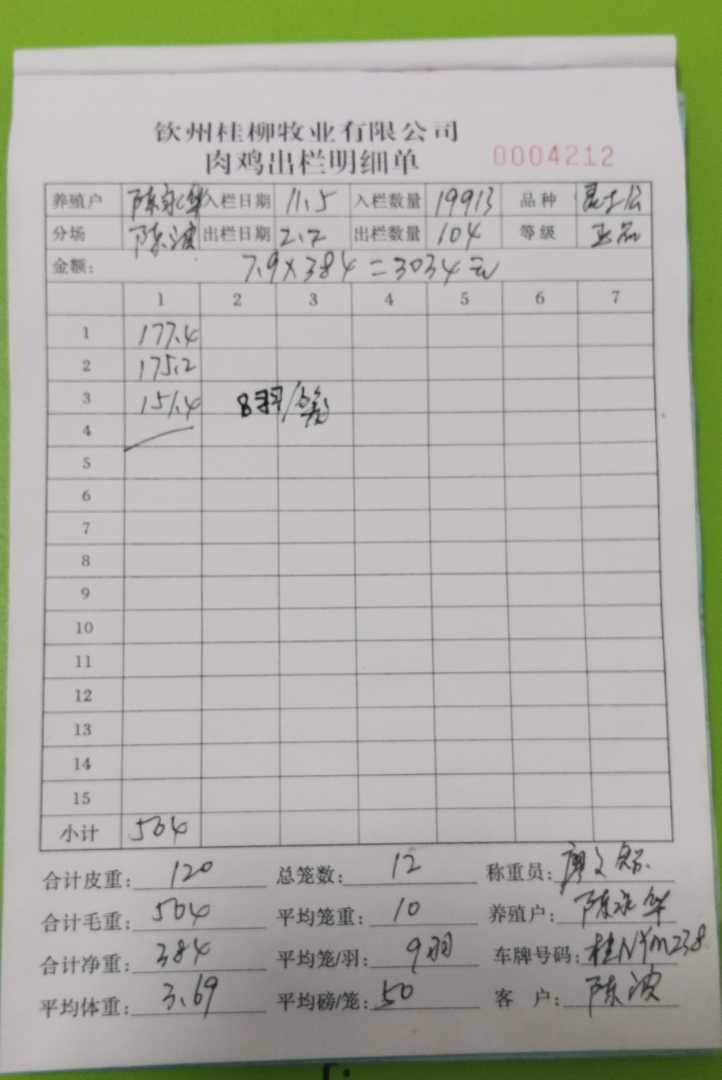 钦州桂柳牧业有限公司
肉鸡出栏明细单 0004212
养殖户 陈永华 入栏日期 11.5 入栏数量 19913 品种
分场 陈波 出栏日期 2.2 出栏数量 104 等级 正品
金额: 7.9×384=3034元
1 2 3 4 5 6 7
1 177.4
2 175.2
3 151.4 8羽/笼
4
5
6
7
8
9
10
11
12
13
14
15
小计 504
合计皮重: 120 总笼数: 12 称重员: 廖文
合计毛重: 504 平均笼重: 10 养殖户: 陈永华
合计净重: 384 平均笼/羽: 9羽 车牌号码: 桂NYM238
平均体重: 3.69 平均磅/笼: 50 客户: 陈波